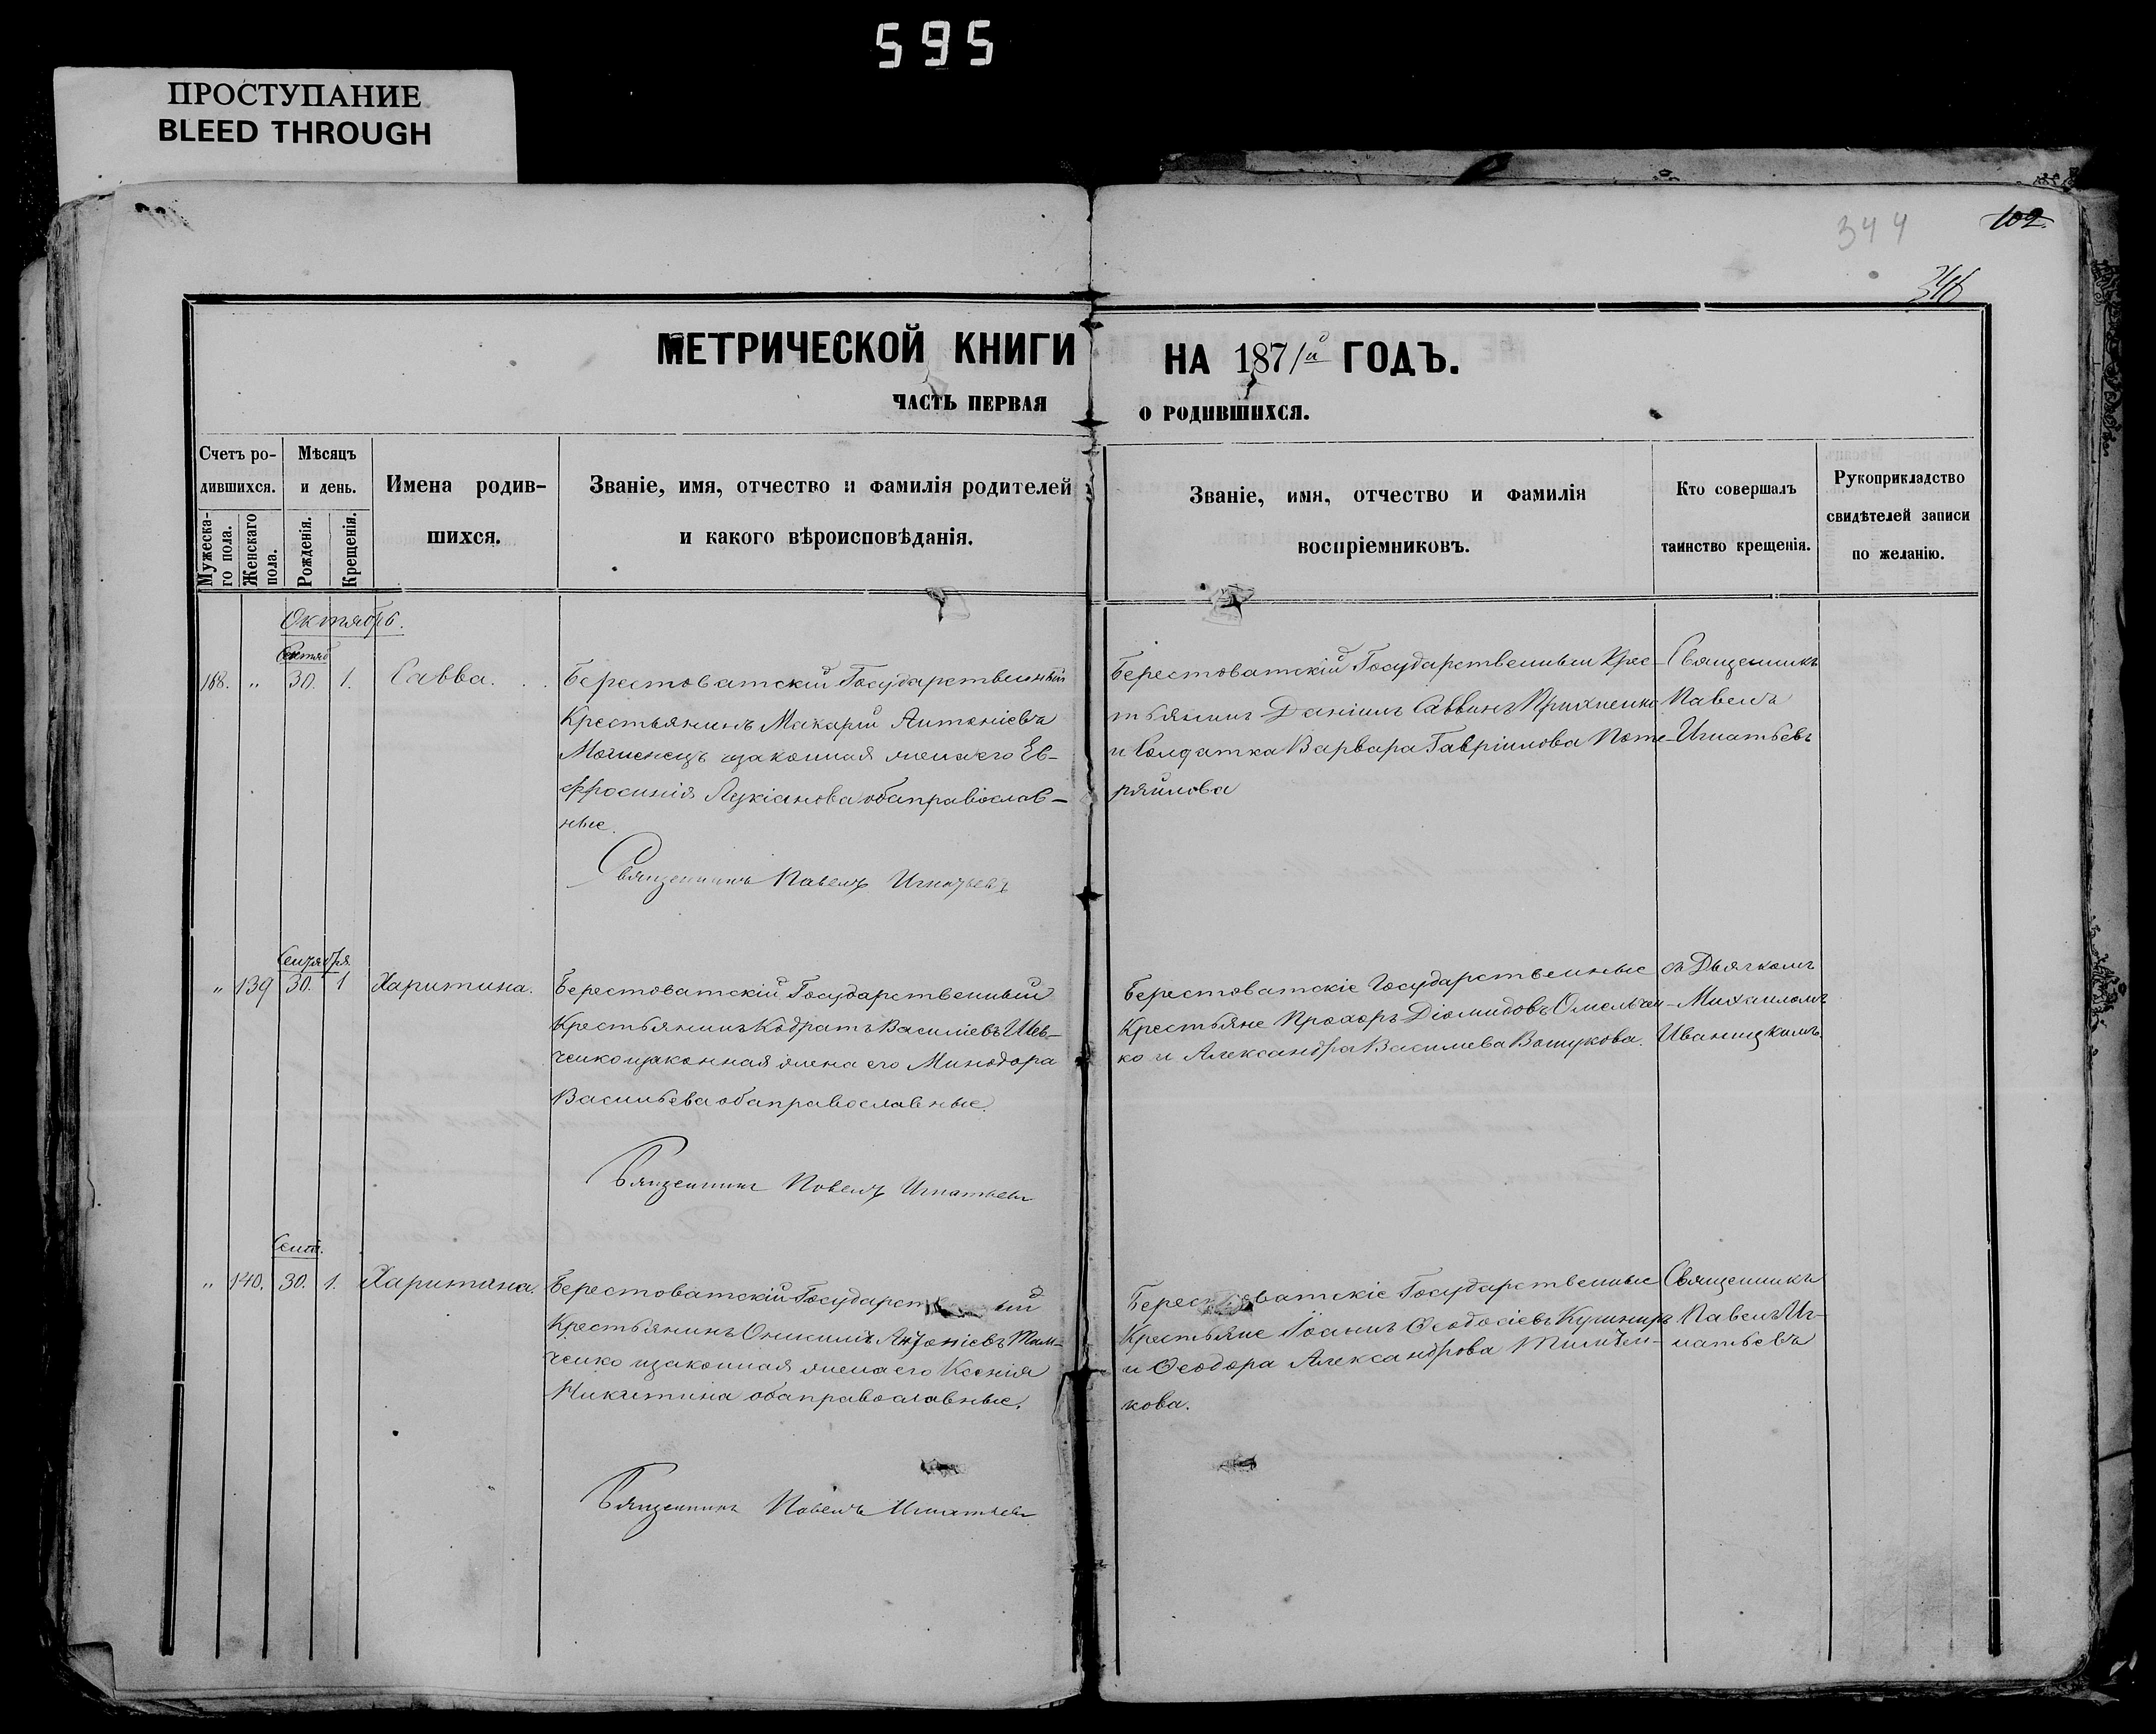 595
ПРОСТУПАНИЕ
BLEED THROUGH
344
102
МЕТРИЧЕСКОЙ КНИГИ НА 1871й ГОДЪ.
ЧАСТЬ ПЕРВАЯ О РОДИВШИХСЯ.
Счетъ ро-
дившихся.
Мужеска-
го пола.
Женскаго
пола.
Мѣсяцъ
и день.
Рожденія.
Крещенія.
Имена родив-
шихся.
Званіе, имя, отчество и фамилія родителей
и какого вѣроисповѣданія.
Званіе, имя, отчество и фамилія
воспріемниковъ.
Кто совершалъ
таинство крещенія.
Рукоприкладство
свидѣтелей записи
по желанію.
Октябрь.
168. " 30. 1. Савва.
Берестоватскій Государственный
Крестьянинъ Макарій Антоніевъ
и законная жена его Ев-
фросинія Лукіанова оба православ-
ные.
Священникъ Павелъ Игнатьевъ
Берестоватскій Государственный Крес-
тьянинъ Даніилъ Саввинъ
и Солдатка Варвара Гавріилова
Священникъ
Павелъ
Игнатьевъ
Сентября
" 139 30. 1 Харитина.
Берестоватскій Государственный
Крестьянинъ Кодратъ Василіевъ Шев-
ченко и законная жена его Минодора
Васильева оба православные.
Священникъ Павелъ Игнатьевъ
Берестоватскіе Государственные
Крестьяне Прохоръ Діомидовъ Омельчен-
ко и Александра Василиева
съ Дьячкомъ
Михаиломъ
Иваницкимъ
Сент.
" 140. 30. 1. Харитина.
Берестоватскій
Крестьянинъ Антоніевъ
и законная жена его Ксенія
Никитина оба православные.
Священникъ Павелъ Игнатьевъ
Берестоватскіе Государственные
Крестьяне Іоаннъ Ѳеодосіевъ Кушниръ
и Ѳеодора Александрова
кова.
Священникъ
Павелъ Иг-
натьевъ